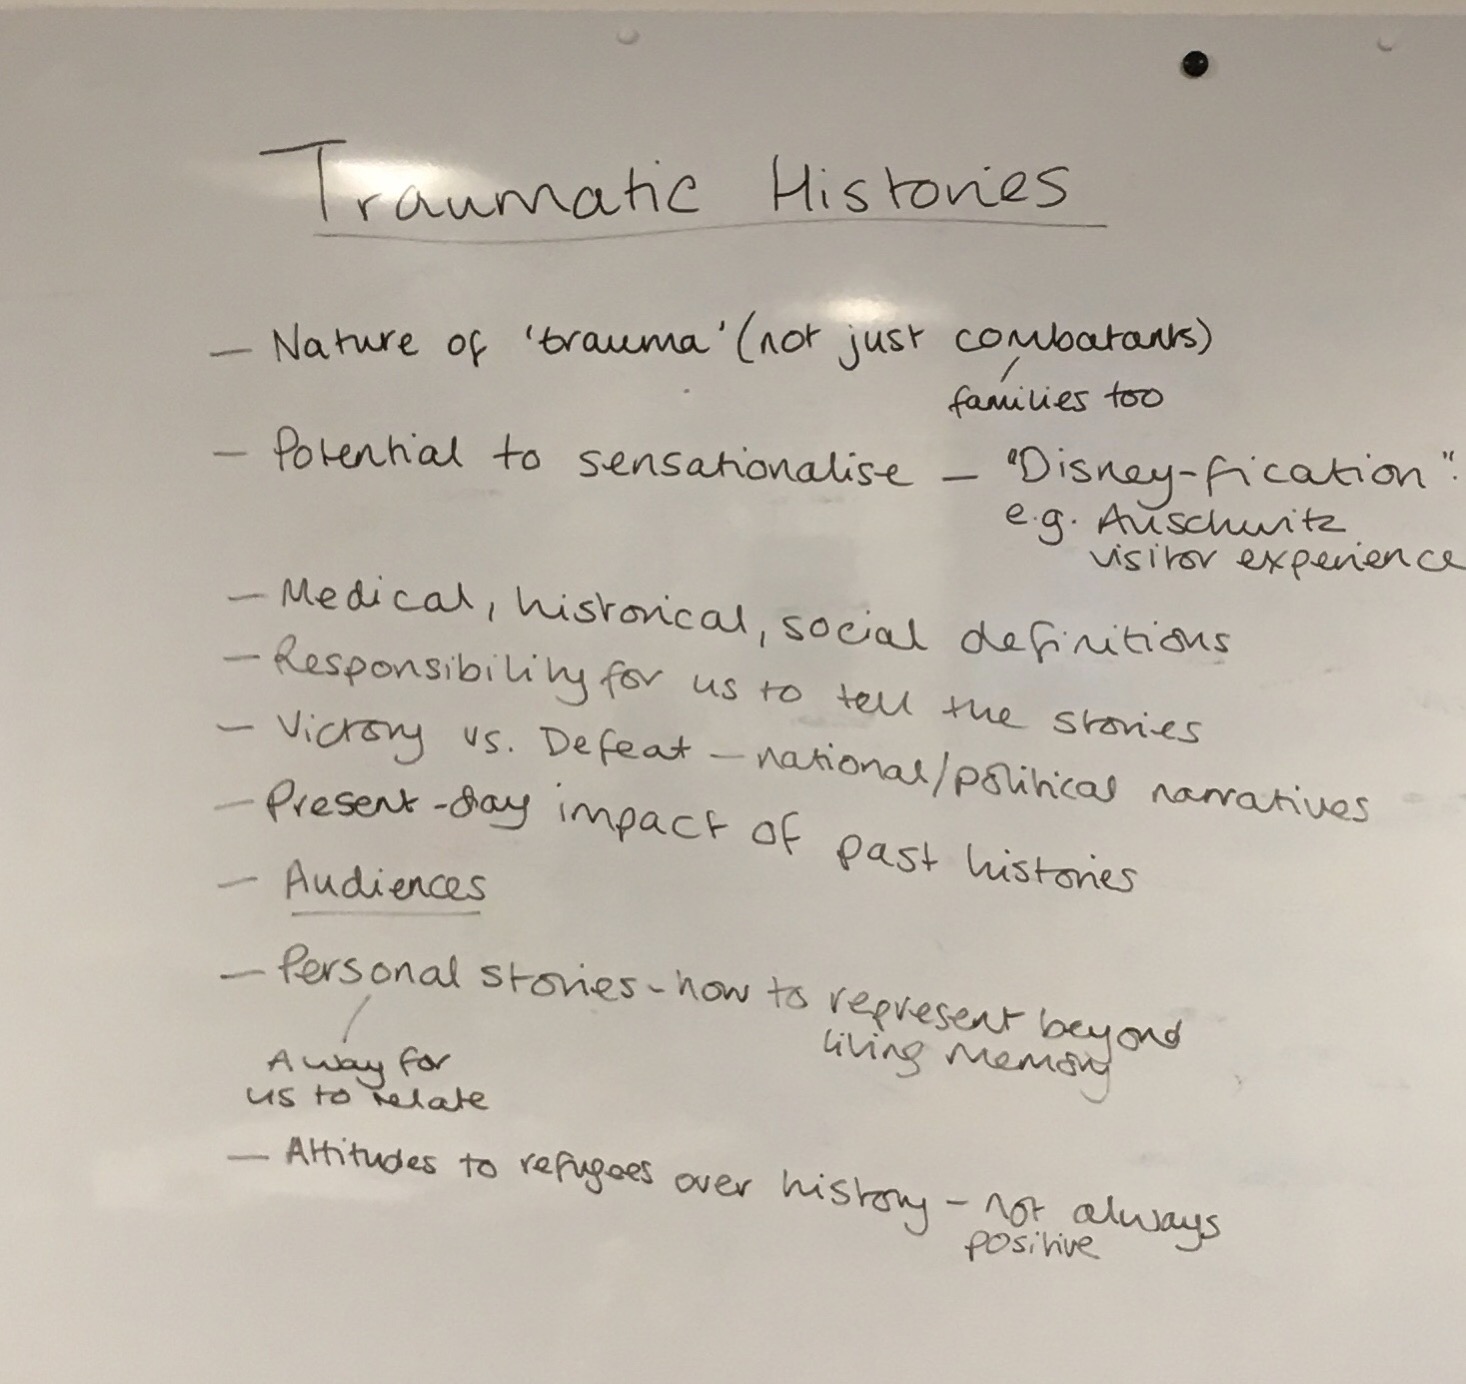 Traumatic Histories
– Nature of 'trauma' (not just combatants)
families too
– Potential to sensationalise – "Disney-fication".
e.g. Auschwitz
visitor experience
– Medical, historical, social definitions
– Responsibility for us to tell the stories
– Victory vs. Defeat – national/political narratives
– Present-day impact of past histories
– Audiences
– Personal stories - how to represent beyond
living memory
A way for
us to relate
– Attitudes to refugees over history – not always
positive